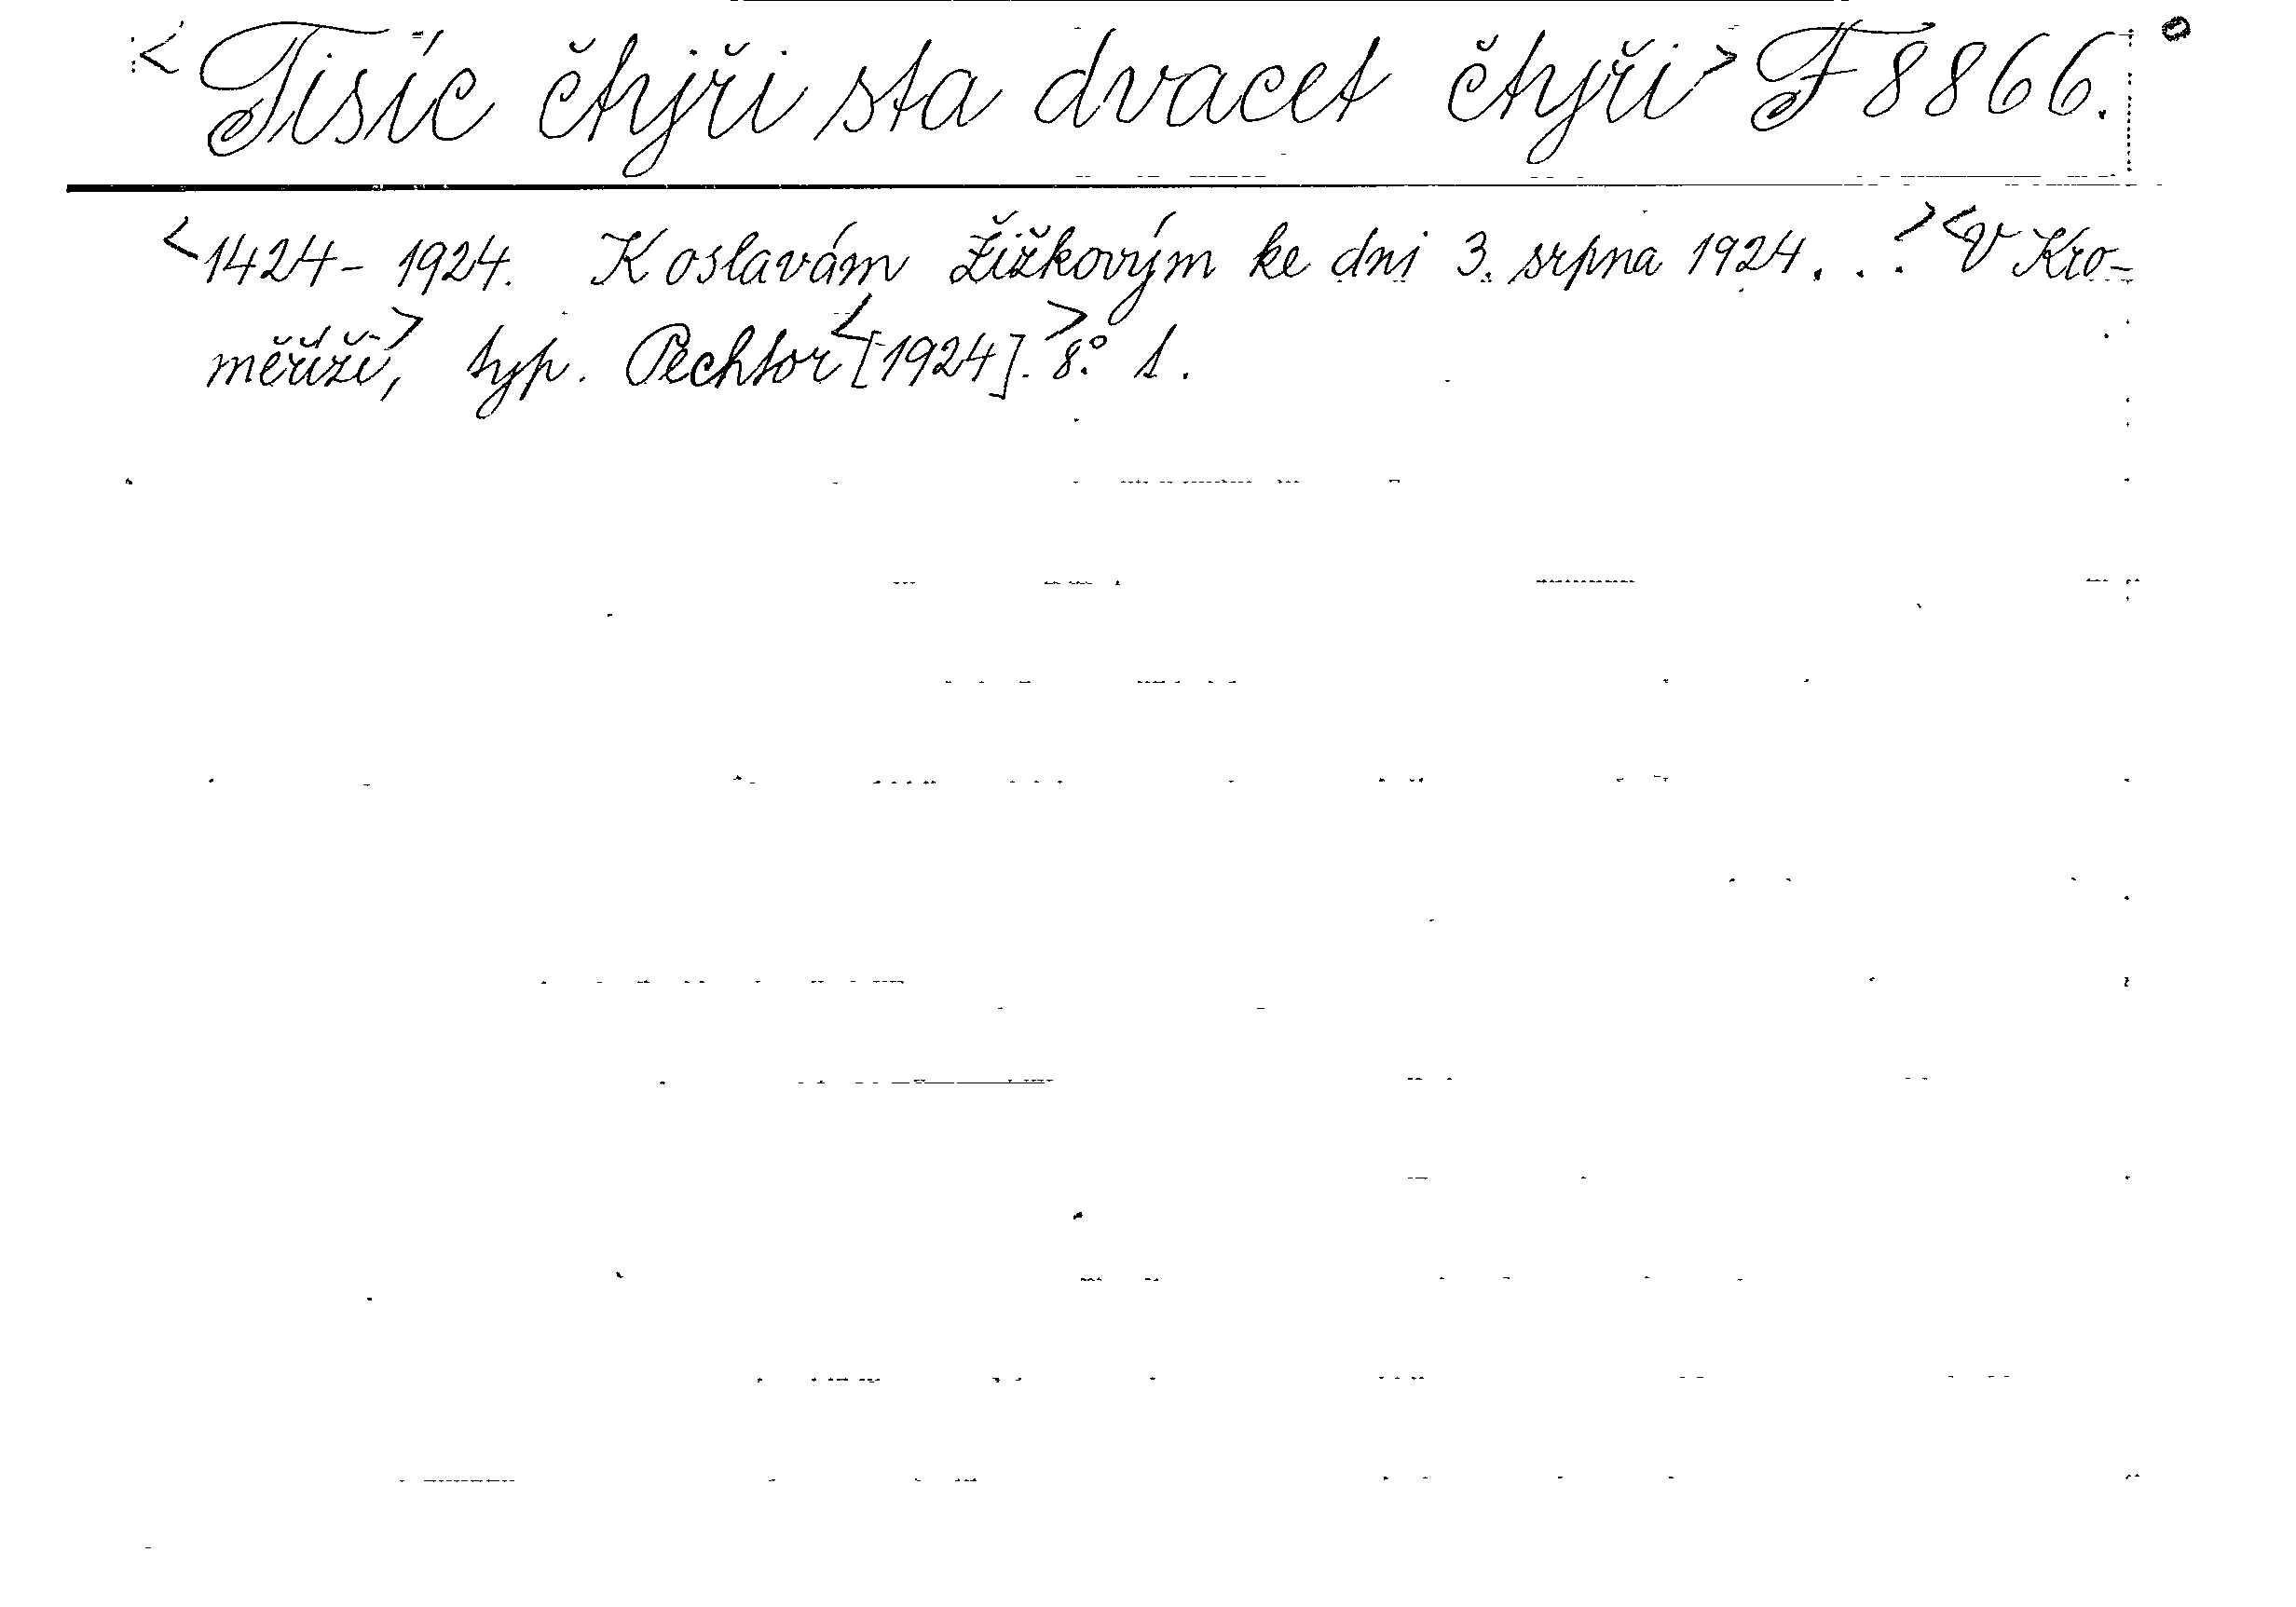 <Tisíc čtyři sta dvacet čtyři> F 8866.
<1424-1924. K oslavám Žižkovým ke dni 3. srpna 1924...> <V Kro-
měříži>, typ. Pechtor <[1924].> 8.° 1.